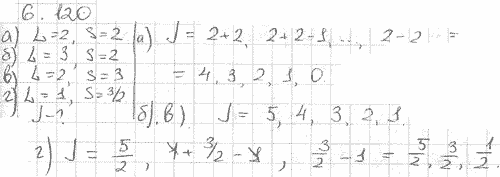 6.120
а) L=2, S=2
б) L=3, S=2
в) L=2, S=3
г) L=1, S=3/2
J-?
а) J = 2+2, 2+2-1, ..., 2-2 =
= 4, 3, 2, 1, 0
б), в) J = 5, 4, 3, 2, 1.
г) J = 5/2, 1 + 3/2 - 1, 3/2 - 1 = 5/2, 3/2, 1/2.